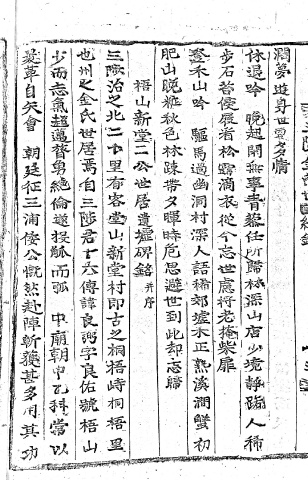 澗夢遊身世更多慵
休退吟 晩起閑無事青藜任所歸林深山店少境静蹋人稀
步石苔侵屐看松露滴衣從今忘世慮將老掩柴扉
登禾山吟 驅馬過幽洞村深人語稀郊墟禾正熟溪澗蟹初
肥山晩粧秋色林疎帶夕暉時危思避世到此却忘歸
梧山新堂二公世居遺墟碑銘 幷序
三陟治之北二十里有客堂山新堂村即古之桐梧峙桐梧里
也州之金氏世居焉自三陟君十六傳諱良弼字良佑號梧山
少而志氣超邁膂力絶倫遊投觚而弧 中廟朝中乙科嘗以
 自矢會 朝廷征三浦倭公慨然赴陣斬獲甚多用其功